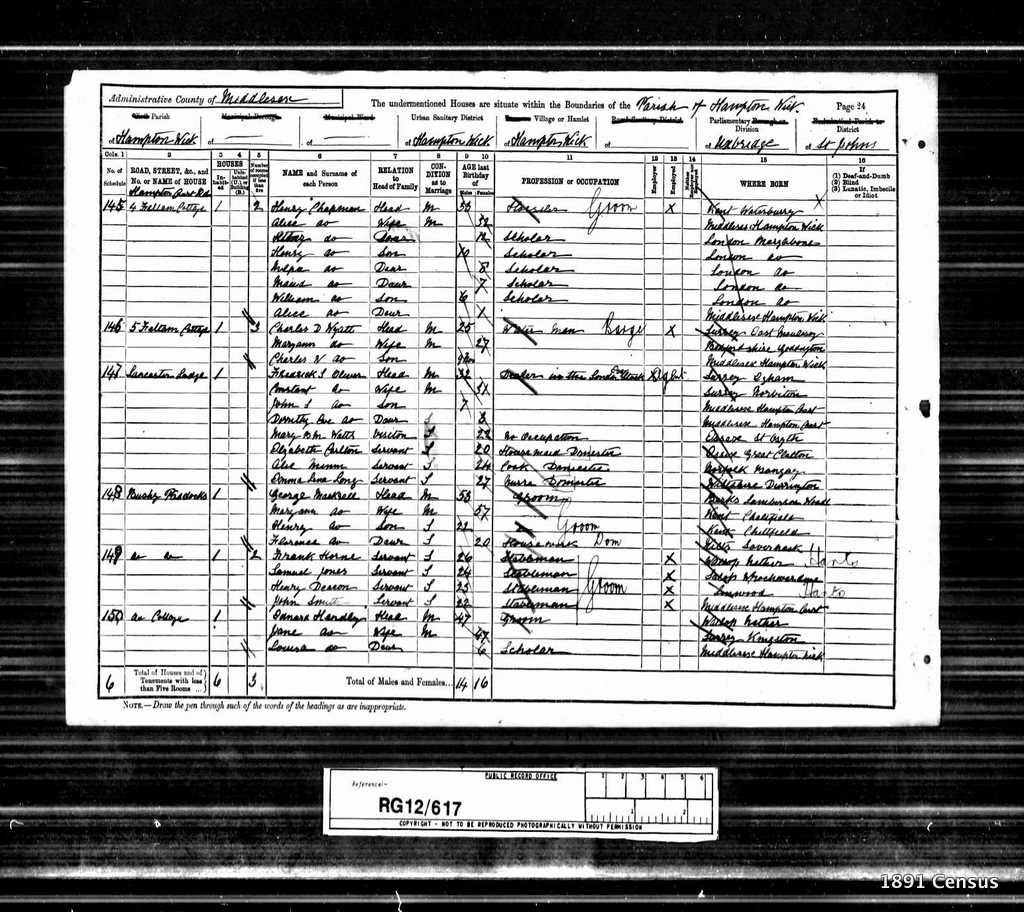 Administrative County of Middlesex
The undermentioned Houses are situate within the Boundaries of the Parish of Hampton Wick
Page 24
Civil Parish
of Hampton Wick
Municipal Borough
of
Municipal Ward
of
Urban Sanitary District
of Hampton Wick
Town or Village or Hamlet
of Hampton Wick
Rural Sanitary District
of
Parliamentary Borough or Division
of Uxbridge
Ecclesiastical Parish or District
of St Johns
Cols. 1 2 3 4 5 6 7 8 9 10 11 12 13 14 15 16
No. of Schedule
ROAD, STREET, &c., and No. or NAME of HOUSE
HOUSES
In-habited
Unin-habited (U.), or Building (B.)
Number of rooms occupied if less than five
NAME and Surname of each Person
RELATION to Head of Family
CONDITION as to Marriage
AGE last Birthday of
Males Females
PROFESSION or OCCUPATION
Employer
Employed
Neither
WHERE BORN
If (1) Deaf-and-Dumb (2) Blind (3) Lunatic, Imbecile or Idiot
Hampton Court Rd
145 4 Feltam Cottage 1 2 Henry Chapman Head M 35 Groom X Kent
Alice do Wife M Middlesex Hampton Wick
do Daur 12 Scholar London Marylebone
Henry do Son 10 Scholar London do
do Daur 8 Scholar London do
do Daur 7 Scholar London do
William do Son 6 Scholar London do
Alice do Daur 1 Middlesex Hampton Wick
146 5 Feltam Cottage 1 3 Charles D Wyatt Head M 25 Water man Barge X Surrey East
Maryann do Wife M 27
Charles do Son Middlesex Hampton Wick
147 Lancaster Lodge 1 Frederick Oliver Head M 32 Surrey Egham
Constant do Wife M 31 Surrey Norbiton
John do Son 7 Middlesex Hampton Court
Dorothy do Daur 3 Middlesex Hampton Court
Mary Watts Visitor S 22 No Occupation
Elizabeth Carlton Servant S 20 Housemaid Domestic Great Clacton
Servant S 24 Cook Domestic Norfolk
Emma Long Servant S 27 Nurse Domestic Wiltshire
148 Bushy Paddocks 1 George Head M 55 Groom Berks
Maryann do Wife M 57 Kent
Henry do Son S 22 Groom Kent
Florence do Daur S 20 Housework Dom
149 do do 1 2 Frank Horne Servant S 26 Stableman X Hants
Samuel Jones Servant S 24 Stableman Groom X Salop
Henry Deacon Servant S 23 Stableman X Hants
John Smith Servant S 22 Stableman X Middlesex Hampton Court
150 do Cottage 1 Handley Head M 47 Groom
Jane do Wife M 47 Surrey Kingston
Louisa do Daur 6 Scholar Middlesex Hampton Wick
6 Total of Houses and of Tenements with less than Five Rooms ... 6 3 Total of Males and Females... 14 16
NOTE.—Draw the pen through such of the words of the headings as are inappropriate.
PUBLIC RECORD OFFICE
Reference:-
RG12/617
1 2 3 4 5 6
1 2
COPYRIGHT - NOT TO BE REPRODUCED PHOTOGRAPHICALLY WITHOUT PERMISSION
1891 Census